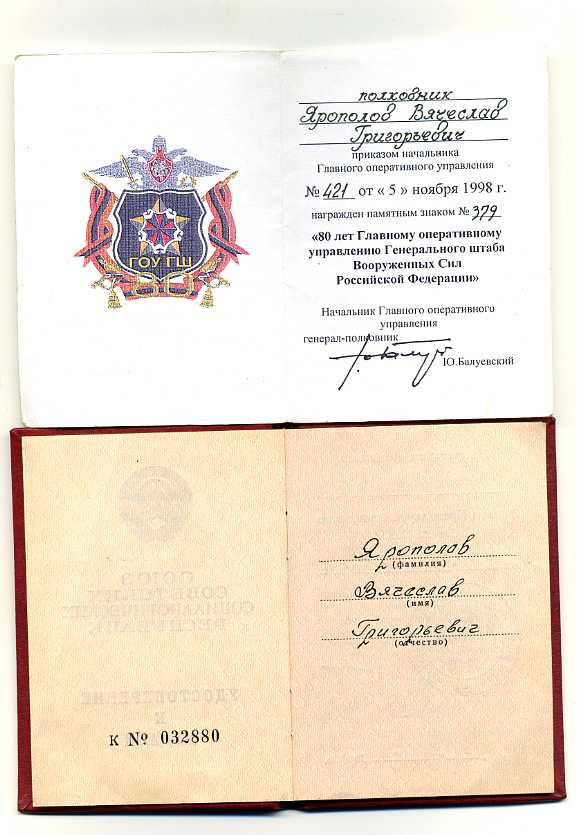 полковник
Ярополов Вячеслав
Григорьевич
приказом начальника
Главного оперативного управления
№ 421 от « 5 » ноября 1998 г.
награжден памятным знаком № 379
«80 лет Главному оперативному
управлению Генерального штаба
Вооруженных Сил
Российской Федерации»
Начальник Главного оперативного
управления
генерал-полковник
Ю.Балуевский
ГОУ ГШ
Ярополов
(фамилия)
Вячеслав
(имя)
Григорьевич
(отчество)
УДОСТОВЕРЕНИЕ
К
К № 032880